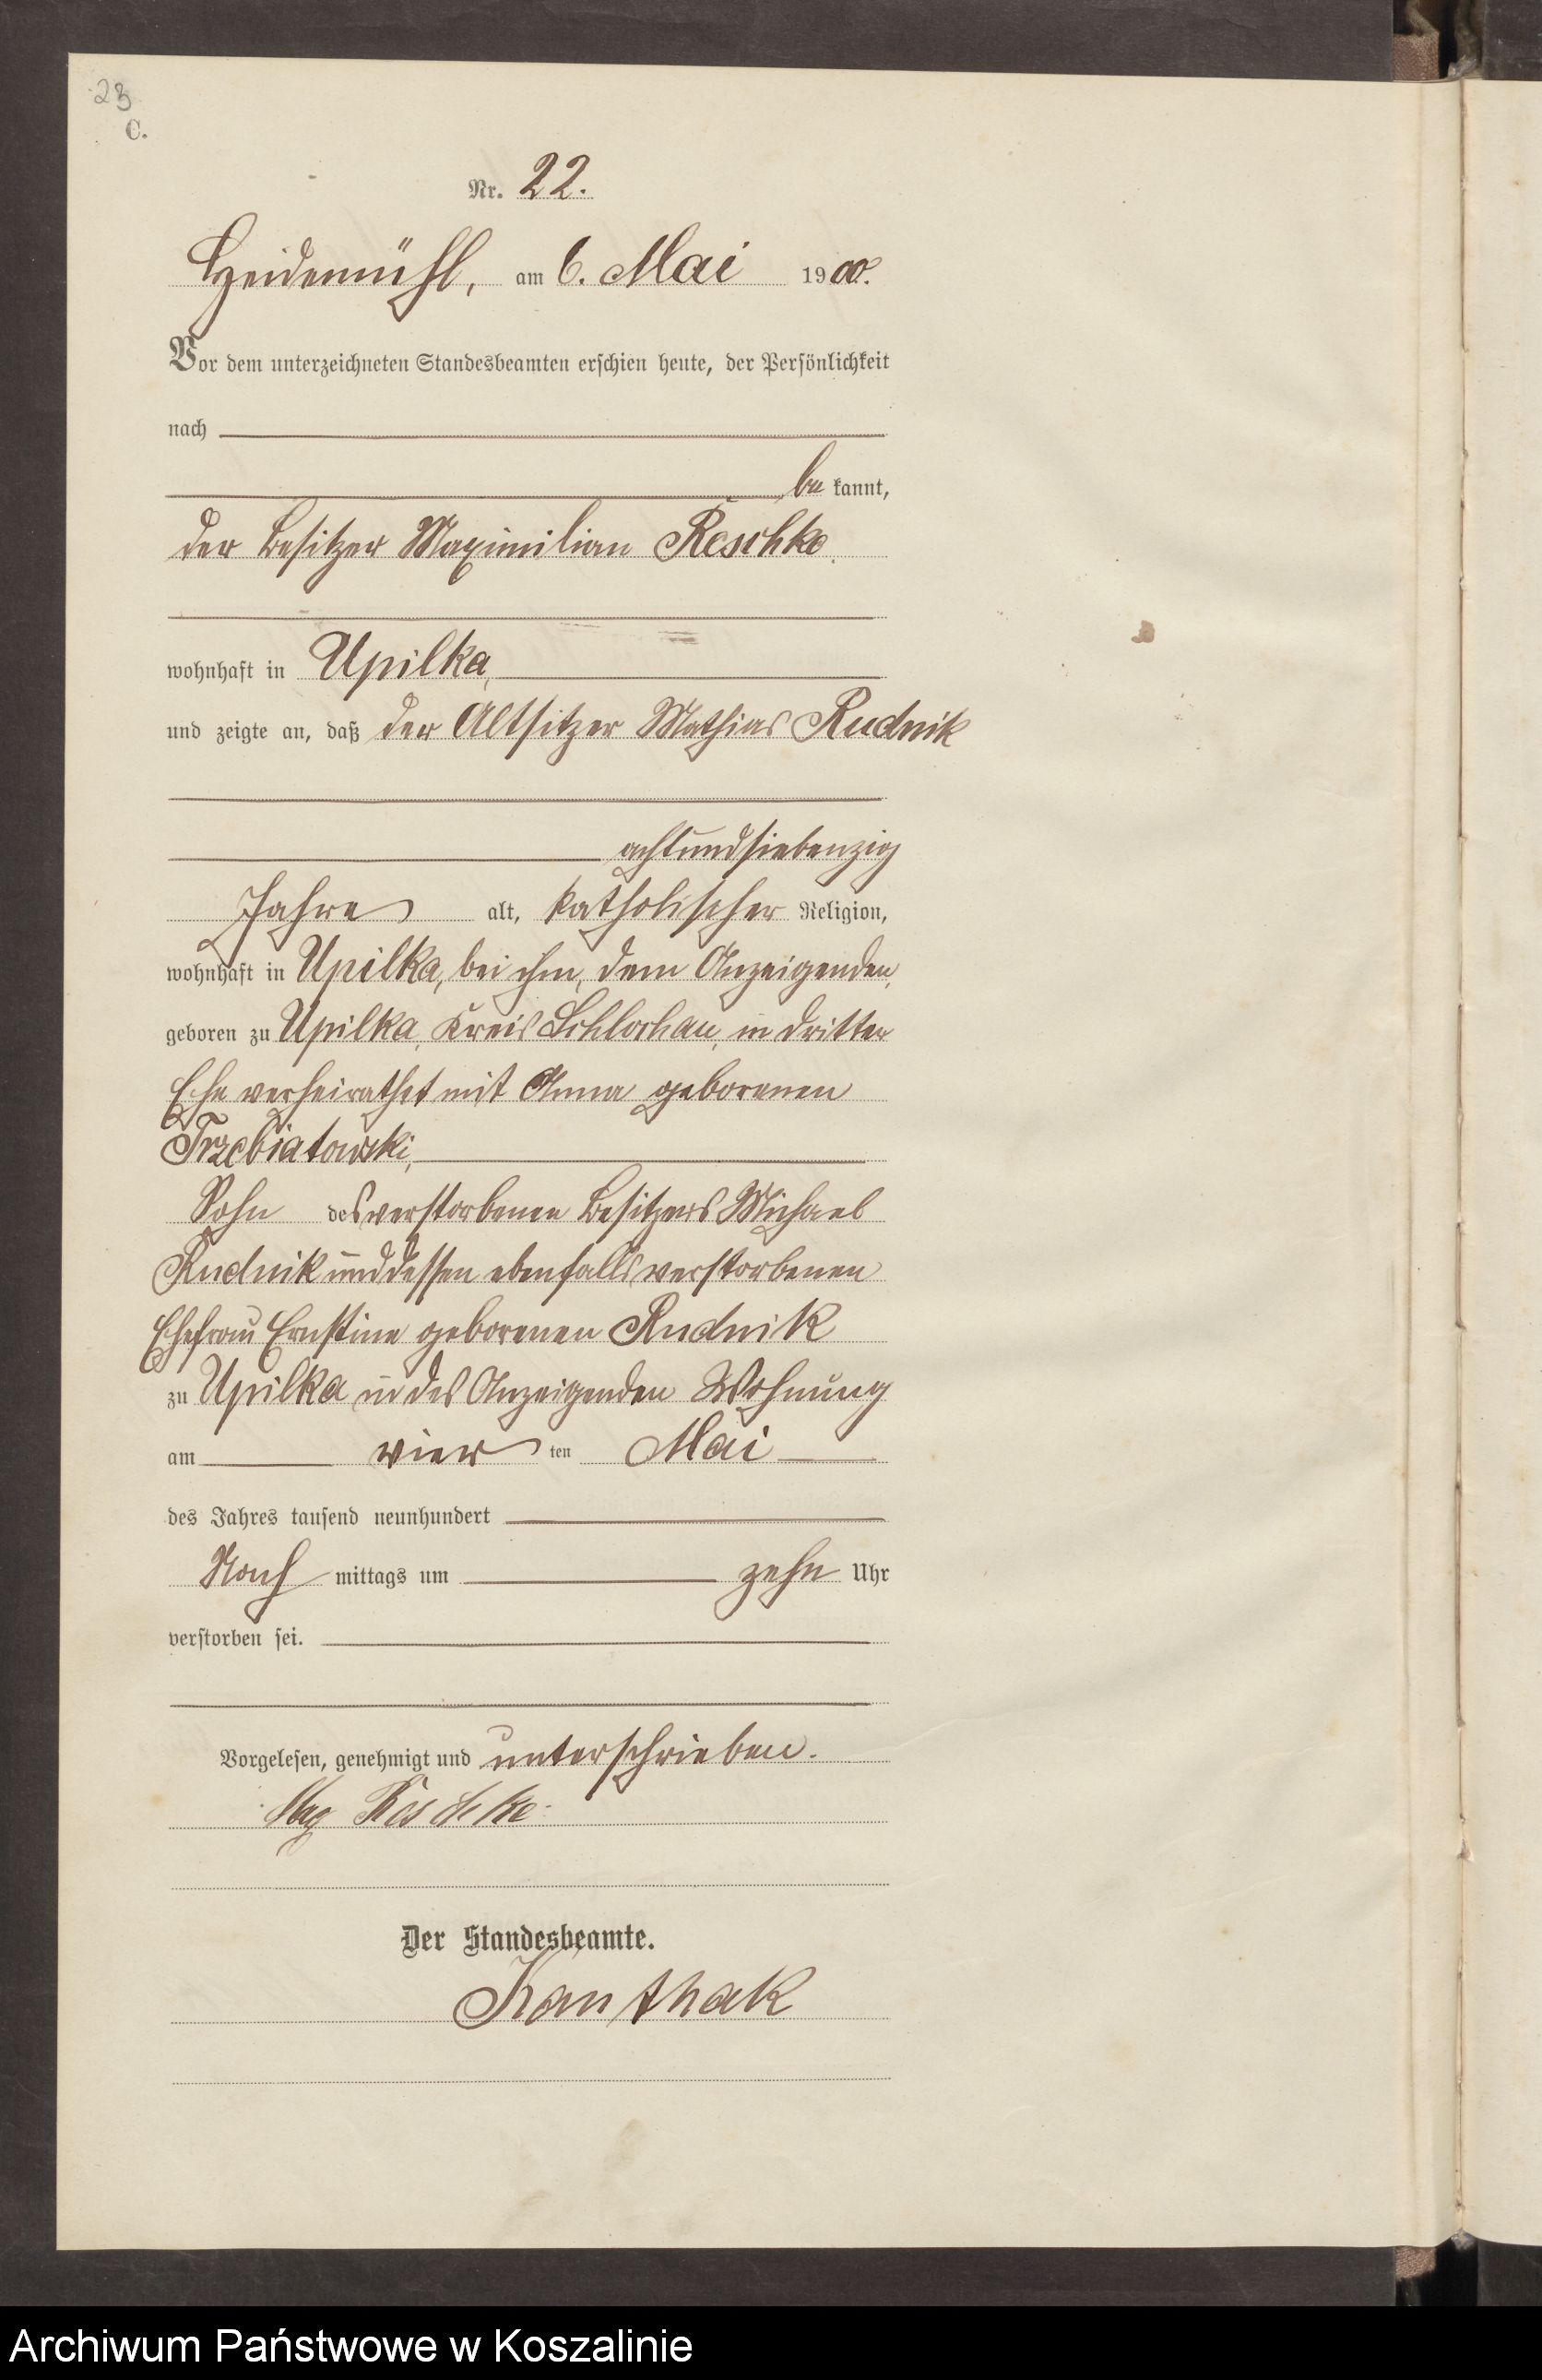 23
C.
Nr. 22.
Heidemühl, am 6. Mai 1900.
Vor dem unterzeichneten Standesbeamten erschien heute, der Persönlichkeit
nach
be kannt,
der Besitzer Maximilian Reschke,
wohnhaft in Upilka,
und zeigte an, daß der Altsitzer Mathias Rudnik
achtundsiebenzig
Jahre alt, katholischer Religion,
wohnhaft in Upilka, bei ihm, dem Anzeigenden,
geboren zu Upilka, Kreis Schlochau, in dritter
Ehe verheirathet mit Anna geborenen
Trzebiatowski,
Sohn des verstorbenen Besitzers Michael
Rudnik und dessen ebenfalls verstorbenen
Ehefrau Ernstine geborenen Rudnik
zu Upilka in des Anzeigenden Wohnung
am vier ten Mai
des Jahres tausend neunhundert
Nach mittags um zehn Uhr
verstorben sei.
Vorgelesen, genehmigt und unterschrieben.
Max Reschke
Der Standesbeamte.
Kanthak
Archiwum Państwowe w Koszalinie